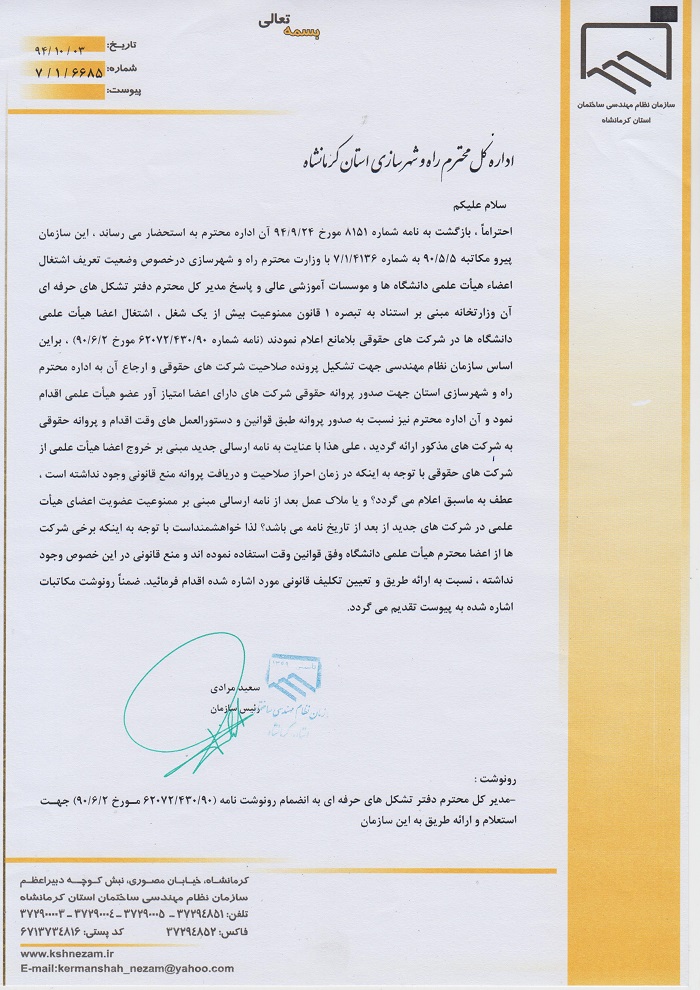 بسمه تعالی
تاریخ: ۹۴/۱۰/۰۳
شماره: ۷/۱/۶۶۸۵
پیوست:
سازمان نظام مهندسی ساختمان
استان کرمانشاه
اداره کل محترم راه و شهرسازی استان کرمانشاه
سلام علیکم
احتراماً ، بازگشت به نامه شماره ۸۱۵۱ مورخ ۹۴/۹/۲۴ آن اداره محترم به استحضار می رساند ، این سازمان
پیرو مکاتبه ۹۰/۵/۵ به شماره ۷/۱/۴۱۳۶ با وزارت محترم راه و شهرسازی درخصوص وضعیت تعریف اشتغال
اعضاء هیأت علمی دانشگاه ها و موسسات آموزشی عالی و پاسخ مدیر کل محترم دفتر تشکل های حرفه ای
آن وزارتخانه مبنی بر استناد به تبصره ۱ قانون ممنوعیت بیش از یک شغل ، اشتغال اعضا هیأت علمی
دانشگاه ها در شرکت های حقوقی بلامانع اعلام نمودند (نامه شماره ۶۲۰۷۲/۴۳۰/۹۰ مورخ ۹۰/۶/۲) ، براین
اساس سازمان نظام مهندسی جهت تشکیل پرونده صلاحیت شرکت های حقوقی و ارجاع آن به اداره محترم
راه و شهرسازی استان جهت صدور پروانه حقوقی شرکت های دارای اعضا امتیاز آور عضو هیأت علمی اقدام
نمود و آن اداره محترم نیز نسبت به صدور پروانه طبق قوانین و دستورالعمل های وقت اقدام و پروانه حقوقی
به شرکت های مذکور ارائه گردید ، علی هذا با عنایت به نامه ارسالی جدید مبنی بر خروج اعضا هیأت علمی از
شرکت های حقوقی با توجه به اینکه در زمان احراز صلاحیت و دریافت پروانه منع قانونی وجود نداشته است ،
عطف به ماسبق اعلام می گردد؟ و یا ملاک عمل بعد از نامه ارسالی مبنی بر ممنوعیت عضویت اعضای هیأت
علمی در شرکت های جدید از بعد از تاریخ نامه می باشد؟ لذا خواهشمنداست با توجه به اینکه برخی شرکت
ها از اعضا محترم هیأت علمی دانشگاه وفق قوانین وقت استفاده نموده اند و منع قانونی در این خصوص وجود
نداشته ، نسبت به ارائه طریق و تعیین تکلیف قانونی مورد اشاره شده اقدام فرمائید. ضمناً رونوشت مکاتبات
اشاره شده به پیوست تقدیم می گردد.
سعید مرادی
رئیس سازمان
سازمان نظام مهندسی ساختمان
استان کرمانشاه
رونوشت :
-مدیر کل محترم دفتر تشکل های حرفه ای به انضمام رونوشت نامه (۶۲۰۷۲/۴۳۰/۹۰ مورخ ۹۰/۶/۲) جهت
استعلام و ارائه طریق به این سازمان
کرمانشاه، خیابان مصوری، نبش کوچه دبیراعظم
سازمان نظام مهندسی ساختمان استان کرمانشاه
تلفن: ۳۷۲۹۴۸۵۱ ـ ۳۷۲۹۰۰۰۵ ـ ۳۷۲۹۰۰۰۴ ـ ۳۷۲۹۰۰۰۳
فاکس: ۳۷۲۹۴۸۵۲ کد پستی: ۶۷۱۳۷۳۴۸۱۶
www.kshnezam.ir
E-mail:kermanshah_nezam@yahoo.com